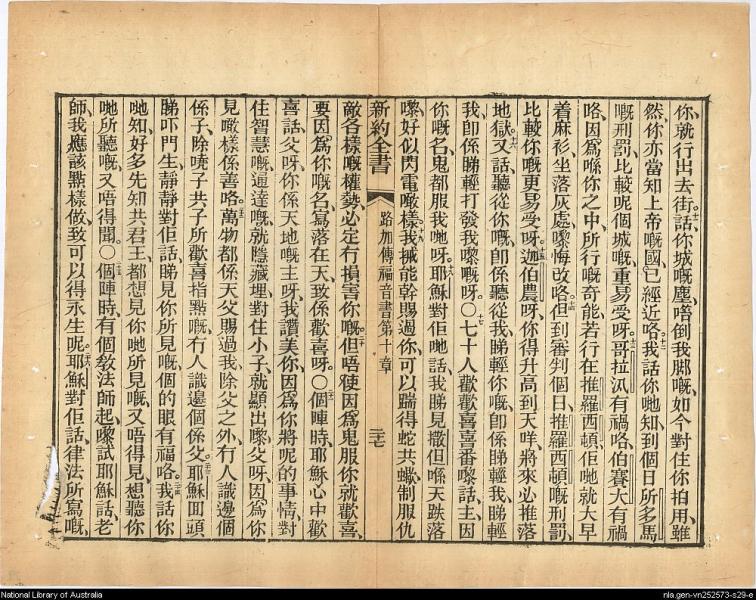 你、就行出去街話、十一你城嘅塵、唔倒我脚嘅、如今對住你拍用、雖
然你亦當知上帝嘅國、已經近咯、十二我話你哋知、到個日、所多馬
嘅刑罰、比較呢個城嘅、重易受呀。十三哥拉汛有禍咯、伯賽大有禍
咯、因爲喺你之中、所行嘅奇能、若行在推羅西頓、佢哋就大早
着麻衫、坐落灰處、嚟悔改咯、十四但到審判個日、推羅西頓嘅刑罰、
比較你嘅更易受呀。十五迦伯農呀、你得升高到天咩、將來必推落
地獄。十六又話、聽從你嘅、卽係聽從我、睇輕你嘅、卽係睇輕我、睇輕
我、卽係睇輕打發我嚟嘅呀。〇十七七十人歡歡喜喜番嚟話、主、因
你嘅名、鬼都服我哋呀。十八耶穌對佢哋話、我睇見撒但喺天跌落
嚟、好似閃電噉樣、十九我摵能幹賜過你、可以踹得蛇共蠍、制服仇
新約全書 路加傳福音書第十章 三七
敵各樣嘅權勢、必定冇損害你嘅。二十但唔使因爲鬼服你就歡喜、
要因爲你嘅名、寫落在天、致係歡喜呀。〇二十一個陣時、耶穌心中歡
喜話、父呀、你係天地嘅主呀、我讚美你、因爲你將呢的事情、對
住智慧嘅、通達嘅、就隱藏埋、對住小子、就顯出嚟、父呀、因爲你
見噉樣係善咯。二十二萬物都係天父賜過我、除父之外、冇人識邊個
係子、除曉子共子所歡喜指點嘅、冇人識邊個係父。二十三耶穌回頭
睇吓門生、靜靜對佢話、睇見你所見嘅、個的眼有福咯。二十四我話你
哋知、好多先知共君王、都想見你哋所見嘅、又唔得見、想聽你
哋所聽嘅、又唔得聞。〇二十五個陣時、有個教法師起嚟、試耶穌話、老
師、我應該點樣做、致可以得永生呢。二十六耶穌對佢話、律法所寫嘅、
National Library of Australia
nla.gen-vn252573-s29-e